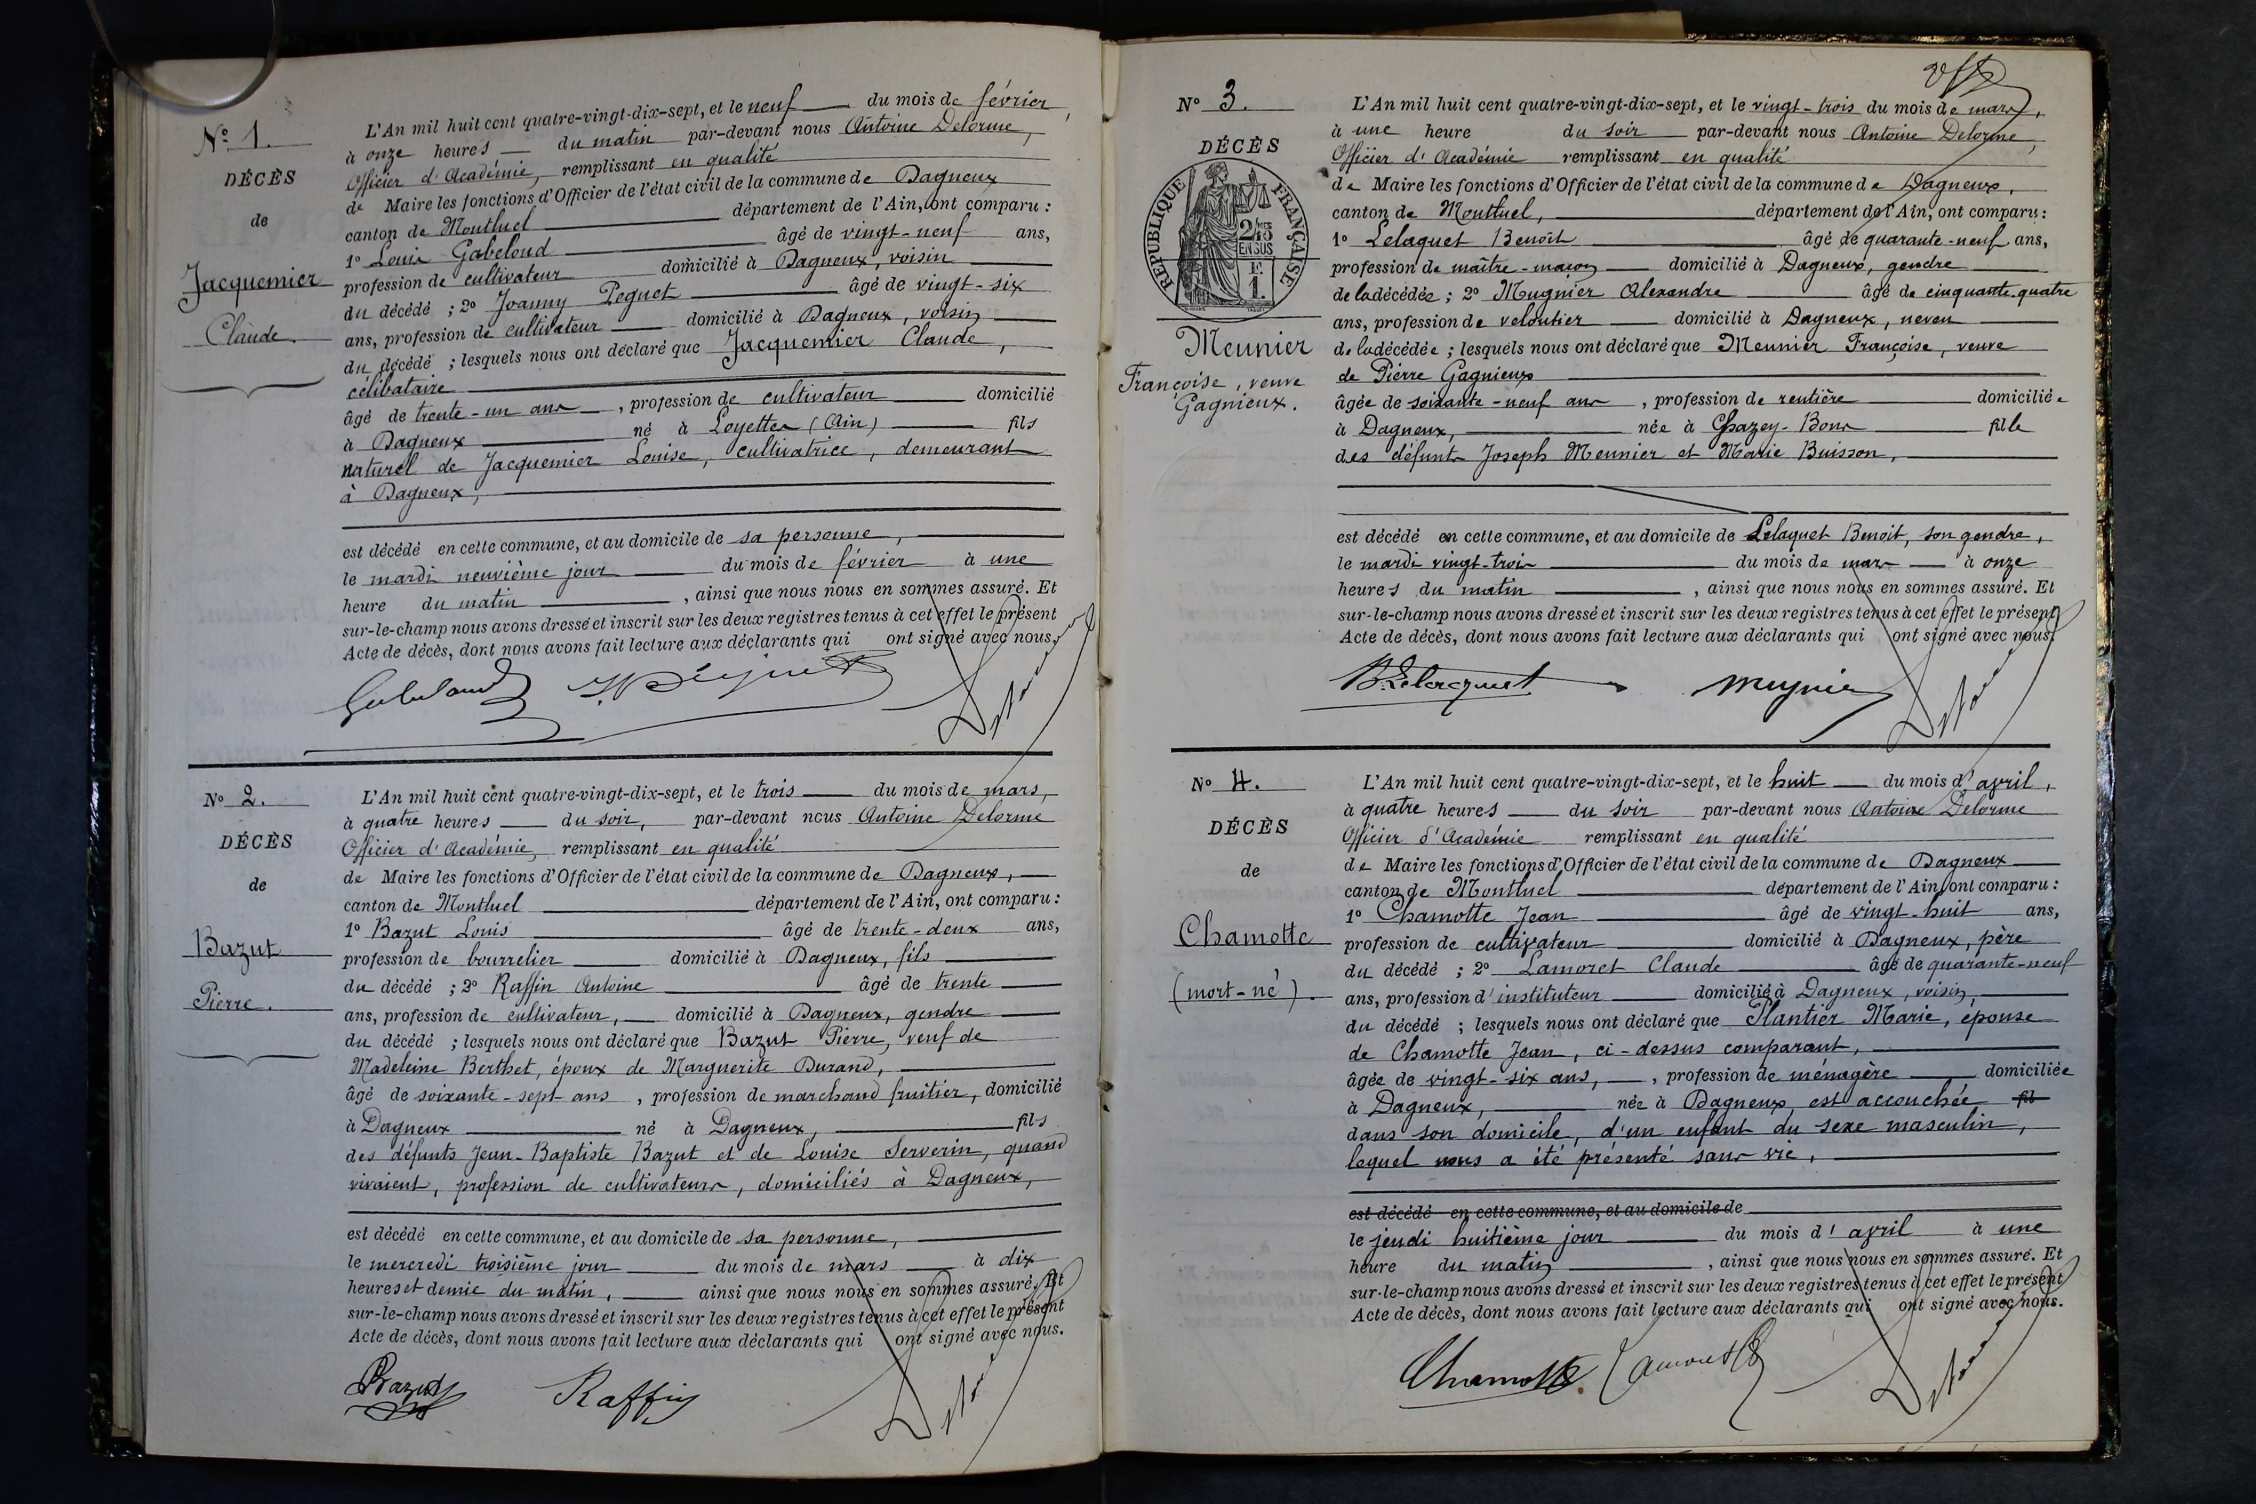 N° 1.
DÉCÈS
de
Jacquemier
Claude.
L'An mil huit cent quatre-vingt-dix-sept, et le neuf du mois de février,
à onze heures du matin par-devant nous Antoine Delorme,
Officier d'Académie, remplissant en qualité
de Maire les fonctions d'Officier de l'état civil de la commune de Dagneux
canton de Montluel département de l'Ain, ont comparu :
1° Louis Gabeloud âgé de vingt-neuf ans,
profession de cultivateur domicilié à Dagneux, voisin
du décédé ; 2° Joanny Peguet âgé de vingt-six
ans, profession de cultivateur domicilié à Dagneux, voisin
du décédé ; lesquels nous ont déclaré que Jacquemier Claude,
célibataire
âgé de trente-un ans, profession de cultivateur domicilié
à Dagneux né à Loyettes (Ain) fils
naturel de Jacquemier Louise, cultivatrice, demeurant
à Dagneux,
est décédé en cette commune, et au domicile de sa personne,
le mardi neuvième jour du mois de février à une
heure du matin, ainsi que nous nous en sommes assuré. Et
sur-le-champ nous avons dressé et inscrit sur les deux registres tenus à cet effet le présent
Acte de décès, dont nous avons fait lecture aux déclarants qui ont signé avec nous.
Gabeloud J. Péguet Delorme
N° 2.
DÉCÈS
de
Bazut
Pierre.
L'An mil huit cent quatre-vingt-dix-sept, et le trois du mois de mars,
à quatre heures du soir, par-devant nous Antoine Delorme
Officier d'Académie, remplissant en qualité
de Maire les fonctions d'Officier de l'état civil de la commune de Dagneux,
canton de Montluel département de l'Ain, ont comparu :
1° Bazut Louis âgé de trente-deux ans,
profession de bourrelier domicilié à Dagneux, fils
du décédé ; 2° Raffin Antoine âgé de trente
ans, profession de cultivateur, domicilié à Dagneux, gendre
du décédé ; lesquels nous ont déclaré que Bazut Pierre, veuf de
Madeleine Berthet, époux de Marguerite Durand,
âgé de soixante-sept ans, profession de marchand fruitier, domicilié
à Dagneux né à Dagneux, fils
des défunts Jean-Baptiste Bazut et de Louise Serverin, quand
vivaient, profession de cultivateurs, domiciliés à Dagneux,
est décédé en cette commune, et au domicile de sa personne,
le mercredi troisième jour du mois de mars à dix
heures et demie du matin, ainsi que nous nous en sommes assuré. Et
sur-le-champ nous avons dressé et inscrit sur les deux registres tenus à cet effet le présent
Acte de décès, dont nous avons fait lecture aux déclarants qui ont signé avec nous.
Bazut Raffin Delorme
N° 3.
DÉCÈS
RÉPUBLIQUE FRANÇAISE
2/10es
EN SUS
F.
1.
Meunier
Françoise, veuve
Gagnieux.
L'An mil huit cent quatre-vingt-dix-sept, et le vingt-trois du mois de mars,
à une heure du soir par-devant nous Antoine Delorme,
Officier d'Académie remplissant en qualité
de Maire les fonctions d'Officier de l'état civil de la commune de Dagneux,
canton de Montluel, département de l'Ain, ont comparu :
1° Lelaquet Benoît âgé de quarante-neuf ans,
profession de maître-maçon domicilié à Dagneux, gendre
de la décédée ; 2° Mugnier Alexandre âgé de cinquante-quatre
ans, profession de veloutier domicilié à Dagneux, neveu
de la décédée ; lesquels nous ont déclaré que Meunier Françoise, veuve
de Pierre Gagnieux
âgée de soixante-neuf ans, profession de rentière domiciliée
à Dagneux, née à Chazey-Bons fille
des défunts Joseph Meunier et Marie Buisson,
est décédé en cette commune, et au domicile de Lelaquet Benoit, son gendre,
le mardi vingt-trois du mois de mars à onze
heures du matin, ainsi que nous nous en sommes assuré. Et
sur-le-champ nous avons dressé et inscrit sur les deux registres tenus à cet effet le présent
Acte de décès, dont nous avons fait lecture aux déclarants qui ont signé avec nous.
B. Lelacquet Mugnier Delorme
N° 4.
DÉCÈS
de
Chamotte
(mort-né).
L'An mil huit cent quatre-vingt-dix-sept, et le huit du mois d'avril,
à quatre heures du soir par-devant nous Antoine Delorme
Officier d'Académie remplissant en qualité
de Maire les fonctions d'Officier de l'état civil de la commune de Dagneux
canton de Montluel département de l'Ain, ont comparu :
1° Chamotte Jean âgé de vingt-huit ans,
profession de cultivateur domicilié à Dagneux, père
du décédé ; 2° Lamoret Claude âgé de quarante-neuf
ans, profession d'instituteur domicilié à Dagneux, voisin,
du décédé ; lesquels nous ont déclaré que Plantier Marie, épouse
de Chamotte Jean, ci-dessus comparant,
âgée de vingt-six ans, profession de ménagère domiciliée
à Dagneux, née à Dagneux, est accouchée fil
dans son domicile, d'un enfant du sexe masculin,
lequel nous a été présenté sans vie,
est décédé en cette commune, et au domicile de
le jeudi huitième jour du mois d'avril à une
heure du matin, ainsi que nous nous en sommes assuré. Et
sur-le-champ nous avons dressé et inscrit sur les deux registres tenus à cet effet le présent
Acte de décès, dont nous avons fait lecture aux déclarants qui ont signé avec nous.
Chamotte Lamoret Delorme